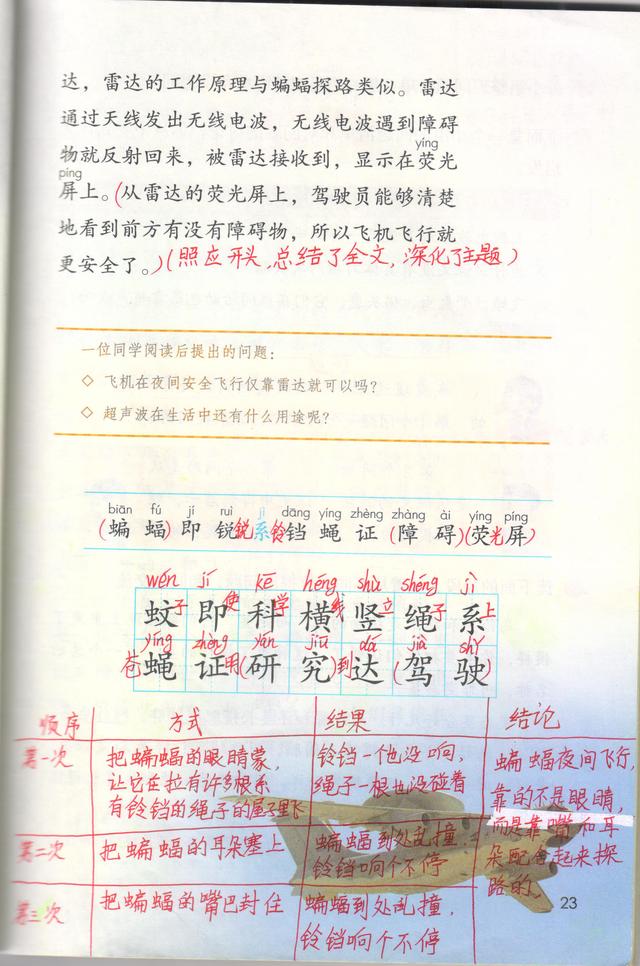 达，雷达的工作原理与蝙蝠探路类似。雷达
通过天线发出无线电波，无线电波遇到障碍
yíng
物就反射回来，被雷达接收到，显示在荧光
píng
屏上。(从雷达的荧光屏上，驾驶员能够清楚
地看到前方有没有障碍物，所以飞机飞行就
更安全了。)(照应开头，总结了全文，深化了主题)
一位同学阅读后提出的问题：
◇ 飞机在夜间安全飞行仅靠雷达就可以吗？
◇ 超声波在生活中还有什么用途呢？
biān fú jí ruì jì dāng yíng zhèng zhàng ài yíng píng
(蝙蝠)即锐锐系铃铛蝇证(障碍)(荧光屏)
wén jí kē héng shù shéng jì
蚊子即使科学横线竖立绳子系上
yíng zhèng yán jiū dá jià shǐ
苍蝇证用(研究)到达(驾驶
顺序 方式 结果 结论
第一次 把蝙蝠的眼睛蒙，让它在拉有许多根系有铃铛的绳子的屋子里飞 铃铛一个也没响，绳子一根也没碰着 蝙蝠夜间飞行，靠的不是眼睛，而是靠嘴和耳朵配合起来探路的。
第二次 把蝙蝠的耳朵塞上 蝙蝠到处乱撞，铃铛响个不停
第三次 把蝙蝠的嘴巴封住 蝙蝠到处乱撞，铃铛响个不停
23